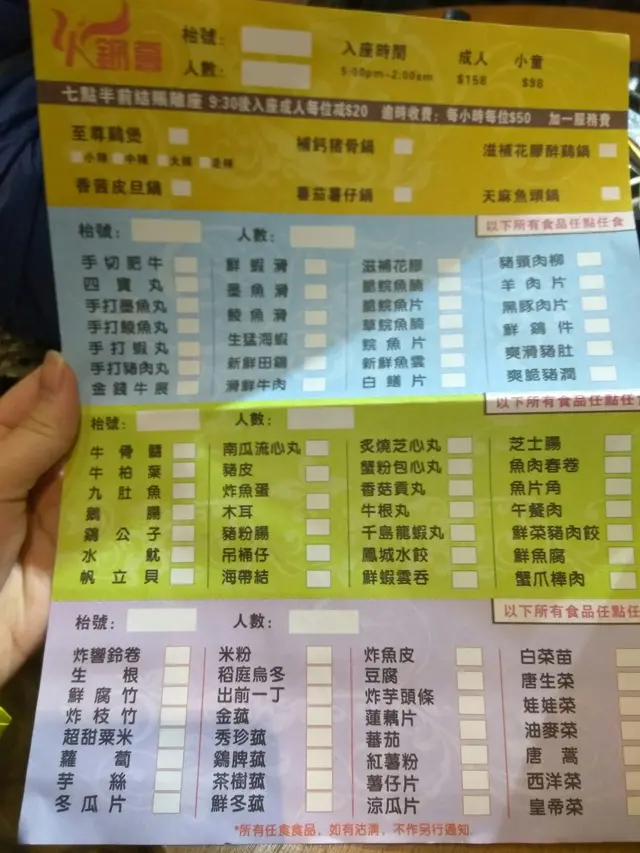 火鍋薈
枱號：
人數：
入座時間 成人 小童
5:00pm-2:00am $158 $98
七點半前結賬離座 9:30後入座成人每位減$20 逾時收費：每小時每位$50 加一服務費
至尊鷄煲 補鈣豬骨鍋 滋補花膠醉鷄鍋
小辣 中辣 大辣 走辣
香茜皮旦鍋 蕃茄薯仔鍋 天麻魚頭鍋
枱號： 人數： 以下所有食品任點任食
手切肥牛 鮮蝦滑 滋補花膠 豬頸肉柳
四寶丸 墨魚滑 脆皖魚腩 羊肉片
手打墨魚丸 鯪魚滑 脆皖魚片 黑豚肉片
手打鯪魚丸 生猛海蝦 草皖魚腩 鮮鷄件
手打蝦丸 新鮮田鷄 皖魚片 爽滑豬肚
手打豬肉丸 滑鮮牛肉 新鮮魚雲 爽脆豬潤
金錢牛展 白鱔片
枱號： 人數： 以下所有食品任點任食
牛骨髓 南瓜流心丸 炙燒芝心丸 芝士腸
牛柏葉 豬皮 蟹粉包心丸 魚肉春卷
九肚魚 炸魚蛋 香菇貢丸 魚片角
鵝腸 木耳 牛根丸 午餐肉
鷄公子 豬粉腸 千島龍蝦丸 鮮菜豬肉餃
水魷 吊桶仔 鳳城水餃 鮮魚腐
帆立貝 海帶結 鮮蝦雲吞 蟹爪棒肉
枱號： 人數： 以下所有食品任點任
炸響鈴卷 米粉 炸魚皮 白菜苗
生根 稻庭烏冬 豆腐 唐生菜
鮮腐竹 出前一丁 炸芋頭條 娃娃菜
炸枝竹 金菰 蓮藕片 油麥菜
超甜粟米 秀珍菰 蕃茄 唐蒿
蘿蔔 鷄脾菰 紅薯粉 西洋菜
芋絲 茶樹菰 薯仔片 皇帝菜
冬瓜片 鮮冬菰 涼瓜片
*所有任食食品，如有沽清，不作另行通知